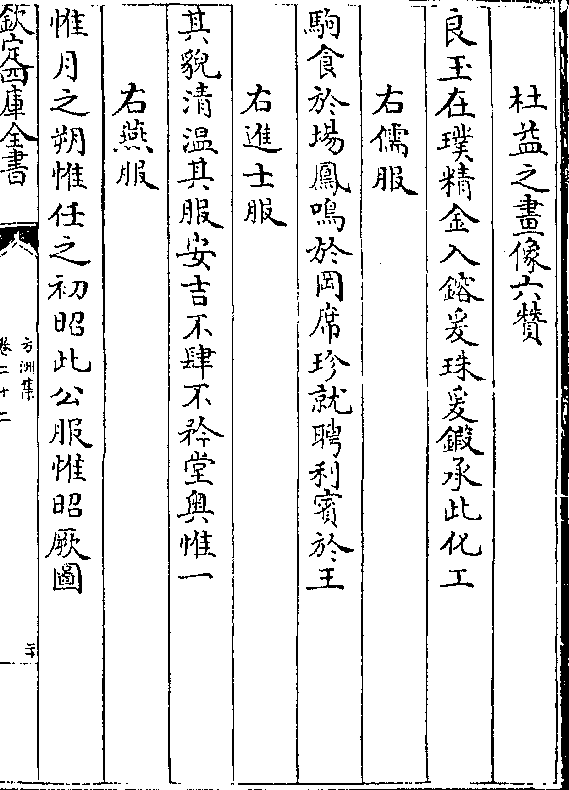 杜益之畫像六贊
良玉在璞精金入鎔爰珠爰鍜承此化工
右儒服
駒食於場鳳鳴於岡席珍就聘利賓於王
右進士服
其貌清温其服安吉不肆不矜堂奥惟一
右燕服
惟月之朔惟任之初昭此公服惟昭厥圖
欽定四庫全書
方洲集
卷二十二
二十